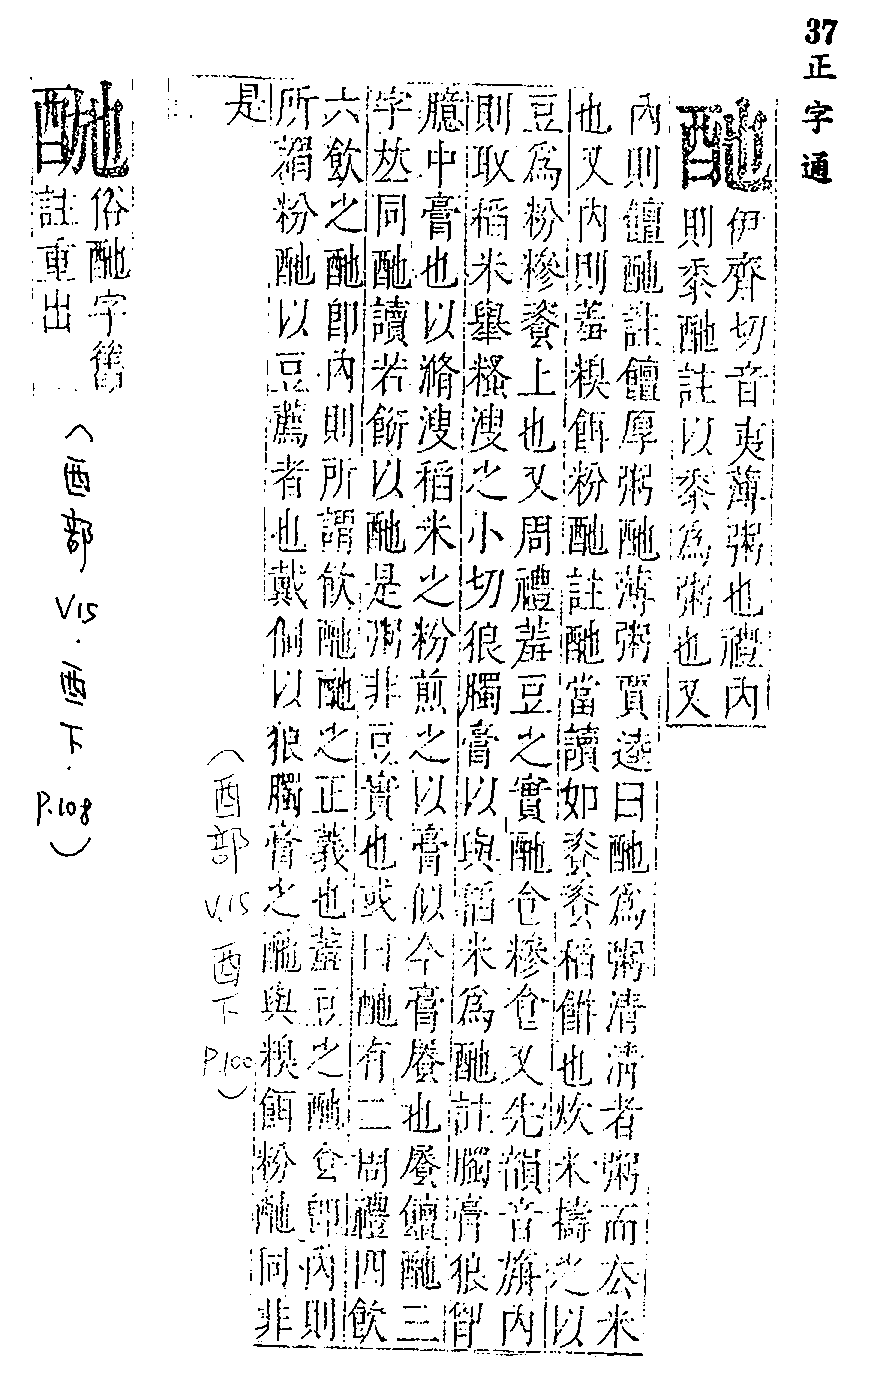 37 正字通
酏
伊齊切音夷薄粥也禮內
則黍酏註以黍為粥也又
內則饘酏註饘厚粥酏薄粥賈逵曰酏為粥清清者粥而厺米
也又內則羞糗餌粉酏註酏當讀如餈餈稻餠也炊米擣之以
豆為粉糝餈上也又周禮羞豆之實酏食糝食又先韻音旃內
則取稻米舉糔溲之小切狼臅膏以與稻米為酏註臅膏狼胷
臆中膏也以滫溲稻米之粉煎之以膏似今膏也饘酏三
字𠀤同酏讀若餰以酏是粥非豆實也或曰酏有二周禮四飲
六飲之酏卽內則所謂飲酏酏之正義也羞豆之酏食卽內則
所謂粉酏以豆薦者也戴侗以狼臅膏之酏與糗餌粉酏同非
是
(酉部 V.15 酉下 P.100)
俗酏字舊
註重出
(酉部 V15.酉下.P.108)